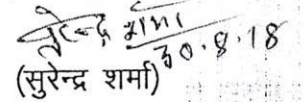 सुरेन्द्र शर्मा
30.8.18
(सुरेन्द्र शर्मा)